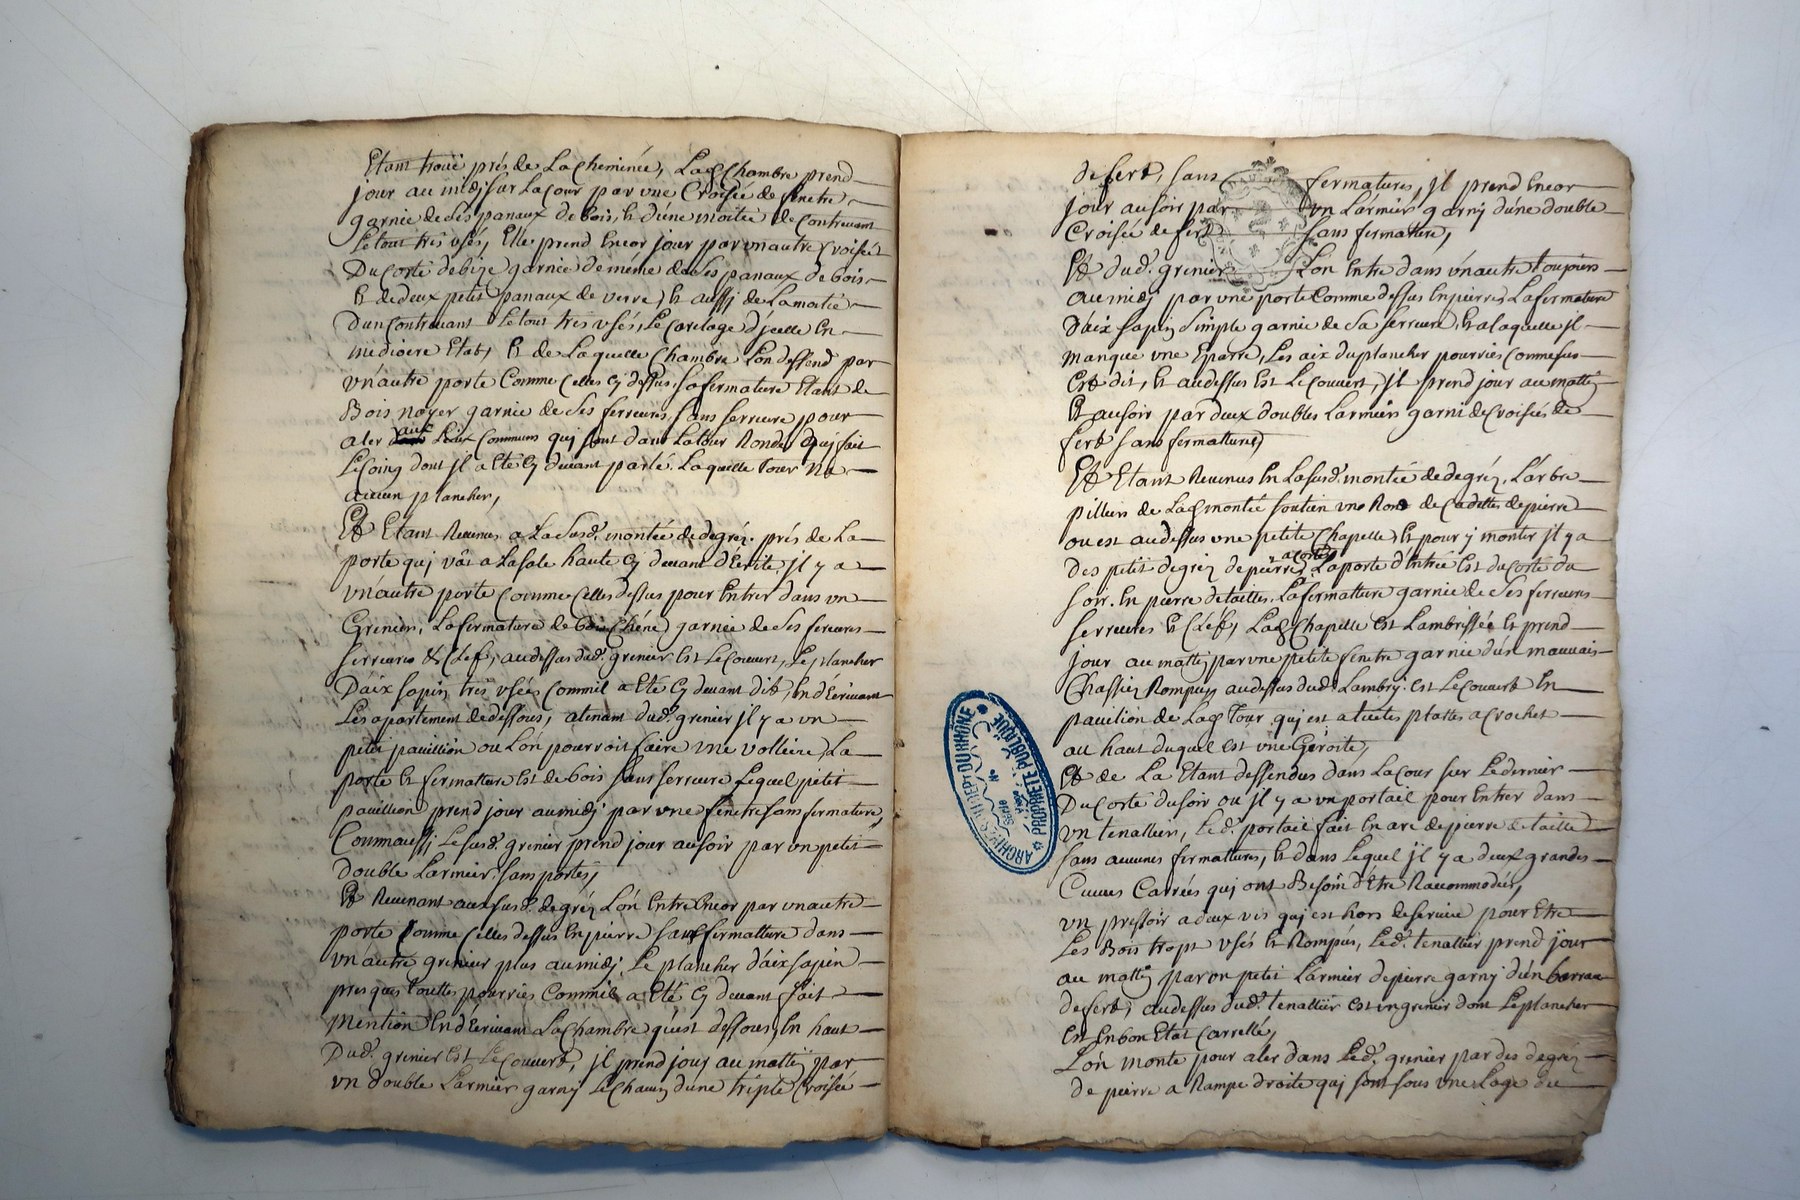 Etant troüé prés de La Cheminée, Lad. Chambre prend
jour au midj sur La Cour par vne Croisée de fenetre
garnie de Ses panaux de bois, & d'une moitée de Contreuant
Le tout très vsés, Elle prend Encor jour par vn autre Croisée
Du Corté de bize garnie de méme de Ses panaux de bois
& de deux petit panaux de verre, & aussj de La moitié
D'un Contreuant Le tout très vsés, Le Carelage d'jcelle En
médiocre Etat, & de Laquelle Chambre L'on dessend par
vn'autre porte Comme Celles Cj dessus, sa fermature Etant de
Bois noyer garnie de Ses ferreures sans serreure pour
aler aux Lieux Communs quj sont dans La tour Ronde quj fait
Le Coing dont jl a Eté Cj deuant parlé. Laquelle tour n'a
aucun plancher,
Et Etant Reuenus a La Susd. montée de degréz prés de La
porte quj vât a La sale haute Cj deuant d'Ecrite, jl y a
vn'autre porte Comme Celles dessus pour Entrer dans vn
Grenier, La fermature de bois Chéne garnie de Ses ferreures
serreures & Clef, au dessus dud. grenier Est Le Couuert, Le plancher
D'aix sapin très vsées Comm'il a Eté Cj deuant dit, En d'Ecriuant
Les apartement de dessous, atenant dud. grenier jl y a vn
petit pauillion ou L'on pourroit faire vne volliere, La
porte & fermatture Est de bois sans serreure Lequel petit
pauillion prend jour au midj par vne fenetre sans fermature,
Comm'aussj Le susd. grenier prend jour au soir par vn petit
double Larmier sans portes,
Et Reuenant aux susd. degréz L'on Entre Encor par vn autre
porte Comme Celles dessus En pierre sans fermatture dans
vn'autre grenier plus au midj, Le plancher d'aix sapin
presques touttes pourries Comm'il a Eté Cj deuant fait
Mention En d'Ecriuant La Chambre qu'est dessous, En haut
Dud. grenier Est Le Couuert, jl prend jour au mattin par
vn double Larmier garnj Le Chacun d'une triple Croisée
de fert, sans fermatures, jl prend Encor
jour au soir par vn Larmier garnj d'une double
Croisée de fert sans fermature,
Et dud. grenier L'on Entre dans vn'autre toujours
au midj par vne porte Comme dessus En pierre, La fermature
D'aix sapin Simple garnie de Sa serreure, & a laquelle jl
manque vne Eparre, Les aix du plancher pourries Comme sus
Est dit, & au dessus Est Le Couuert, jl prend jour au mattin
& au soir par deux doubles Larmiers garni de Croisées de
fert sans fermattures,
Et Etant Reuenus En La susd. montée de degréz, L'arbre
pilliers de Lad. montée soutien vne Rond de Cadettes de pierre
ou est au dessus vne petite Chapelle, & pour y monter jl y a
Des petit degréz de pierre a corté, La porte d'Entrée Est du Corté du
soir, En pierre de tailles, La fermatture garnie de Ses ferreures
serreures & Clef, Lad. Chapelle Est Lambrissée & prend
jour au mattin par vne petite fenetre garnie d'un mauuais
Chassiez Rompus, au dessus dud. Lambrj est Le Couuert En
pauilion de Lad. tour quj est a tuiles plattes a Crochet
au haut duquel est vne Giroite,
Et de La Etant dessendus dans La Cour sur Le dernier
Du Corté du soir ou jl y a vn portail pour Entrer dans
vn tenallier, Led. portail fait En arc de pierre de taille
sans aucunes fermattures, & dans Lequel jl y a deux grandes
Cuues Carrées quj ont Besoin d'Etre Racommodées,
vn pressoir a deux vis quj est hors de seruice pour Etre
Les Bois trop vsés & Rompus, Led. tenallier prend jour
au mattin par vn petit Larmier de pierre garnj d'un barreau
de fert, au dessus dud. tenallier est vn grenier dont Le plancher
Est En bon Etat Carrellé,
L'on monte pour aler dans Led. grenier par des degréz
de pierre a Rampe droite quj sont sous vne Loge de
ARCHIVES DU DEPT DU RHÔNE
PROPRIÉTÉ PUBLIQUE